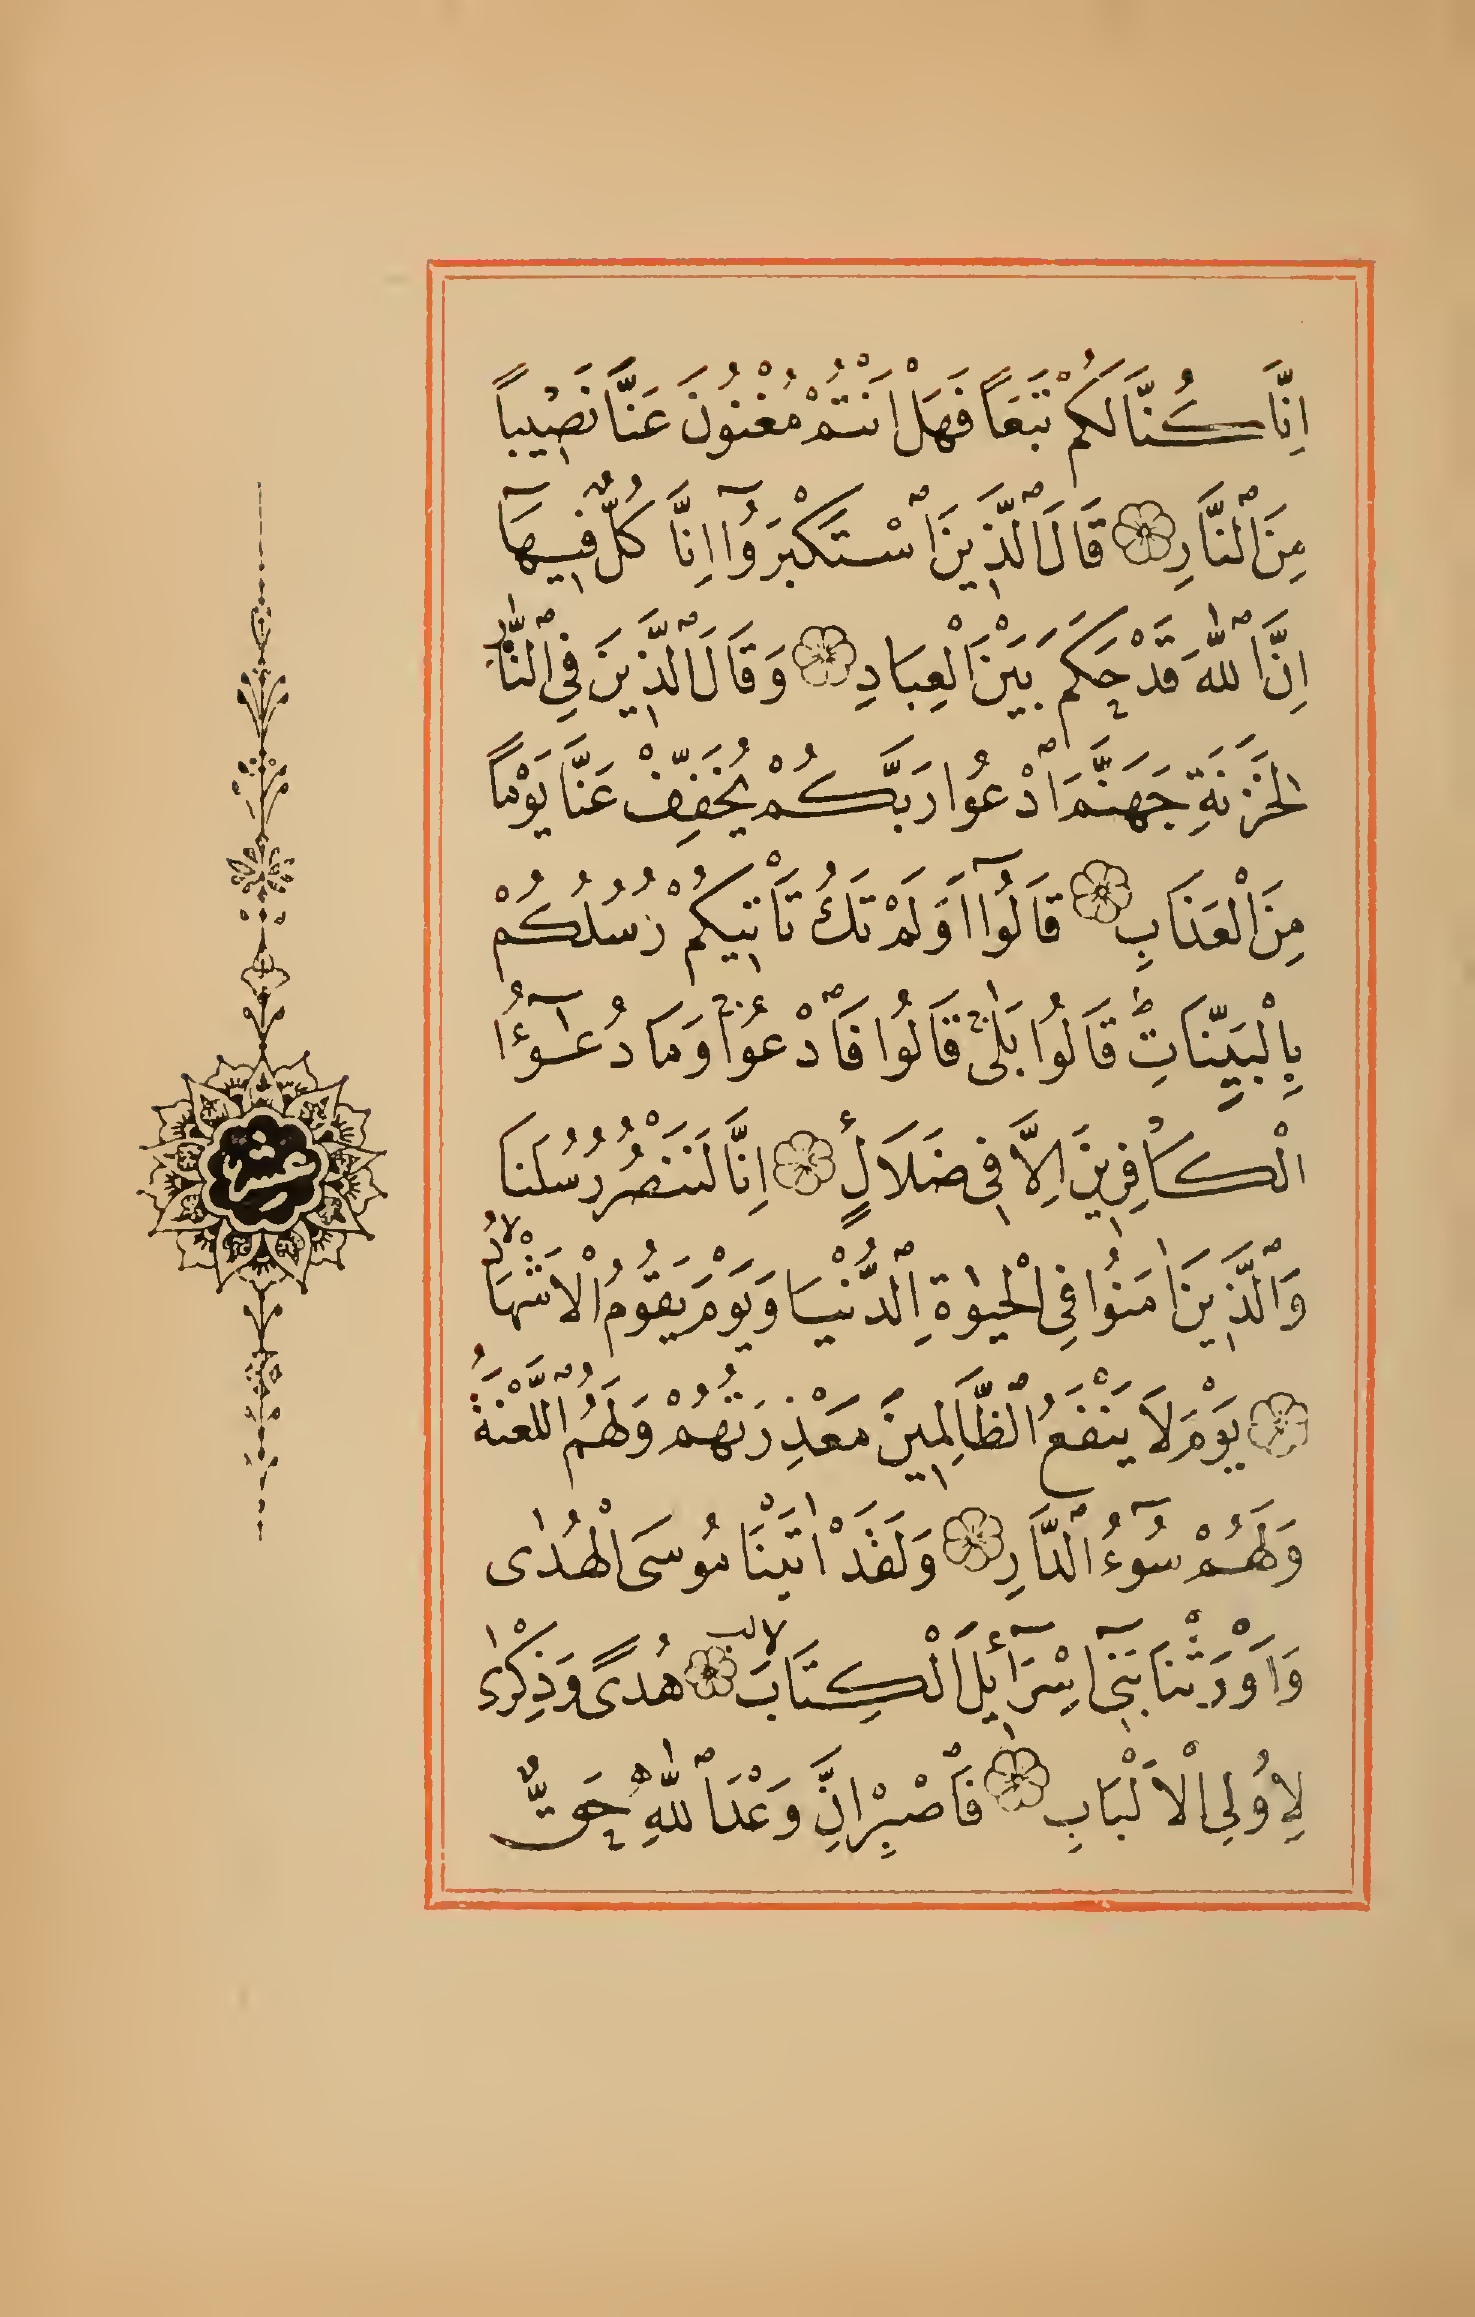 اِنَّا كُنَّا لَكُمْ تَبَعًا فَهَلْ اَنْتُمْ مُغْنُونَ عَنَّا نَصِيبًا
مِنَ النَّارِ قَالَ الَّذِينَ اسْتَكْبَرُوٓا اِنَّا كُلٌّ فِيهَآ
اِنَّ اللّٰهَ قَدْ حَكَمَ بَيْنَ الْعِبَادِ وَقَالَ الَّذِينَ فِي النَّارِ
لِخَزَنَةِ جَهَنَّمَ ادْعُوا رَبَّكُمْ يُخَفِّفْ عَنَّا يَوْمًا
مِنَ الْعَذَابِ قَالُوٓا اَوَلَمْ تَكُ تَأْتِيكُمْ رُسُلُكُمْ
بِالْبَيِّنَاتِ ط قَالُوا بَلٰى ج قَالُوا فَادْعُوا ج وَمَا دُعٰٓؤُا
الْكَافِرِينَ اِلَّا فِي ضَلَالٍ ع اِنَّا لَنَنْصُرُ رُسُلَنَا
وَالَّذِينَ اٰمَنُوا فِي الْحَيٰوةِ الدُّنْيَا وَيَوْمَ يَقُومُ الْاَشْهَادُ لا
يَوْمَ لَا يَنْفَعُ الظَّالِمِينَ مَعْذِرَتُهُمْ وَلَهُمُ اللَّعْنَةُ
وَلَهُمْ سُوٓءُ الدَّارِ وَلَقَدْ اٰتَيْنَا مُوسَى الْهُدٰى
وَاَوْرَثْنَا بَنِيٓ اِسْرَٓائِلَ الْكِتَابَ لا هُدًى وَذِكْرٰى
لِاُولِي الْاَلْبَابِ فَاصْبِرْ اِنَّ وَعْدَ اللّٰهِ حَقٌّ
عشر